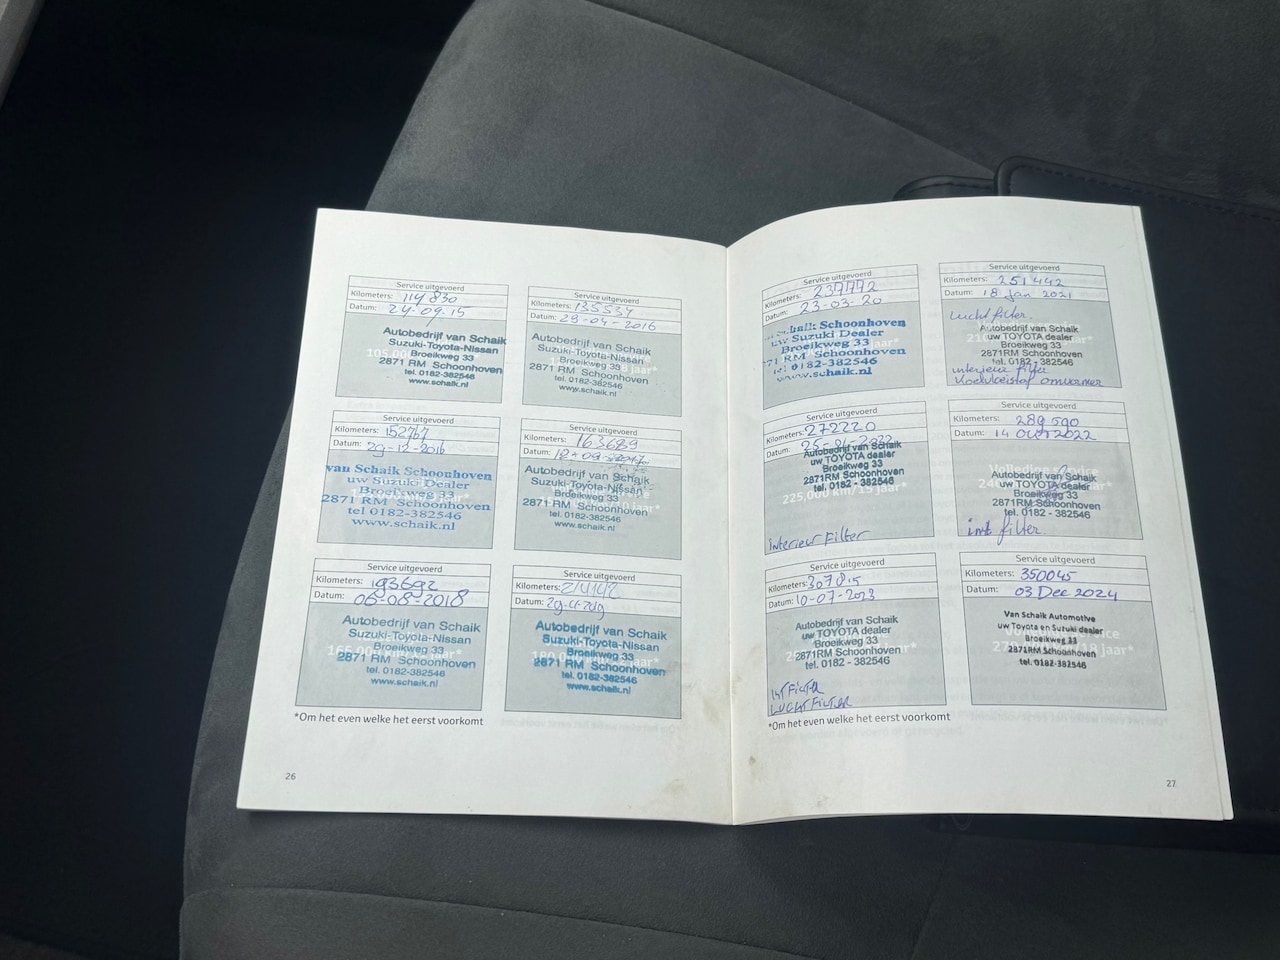 Service uitgevoerd
Kilometers: 114 830
Datum: 24-09-15
Autobedrijf van Schaik
Suzuki-Toyota-Nissan
Broeikweg 33
2871 RM Schoonhoven
tel. 0182-382546
www.schaik.nl
Service uitgevoerd
Kilometers: 135534
Datum: 29-04-2016
Autobedrijf van Schaik
Suzuki-Toyota-Nissan
Broeikweg 33
2871 RM Schoonhoven
tel. 0182-382546
www.schaik.nl
Service uitgevoerd
Kilometers: 152767
Datum: 29-12-2016
van Schaik Schoonhoven
uw Suzuki Dealer
Broeikweg 33
2871 RM Schoonhoven
tel 0182-382546
www.schaik.nl
Service uitgevoerd
Kilometers: 163689
Datum:
Autobedrijf van Schaik
Suzuki-Toyota-Nissan
Broeikweg 33
2871 RM Schoonhoven
tel. 0182-382546
www.schaik.nl
Service uitgevoerd
Kilometers: 193692
Datum: 06-08-2018
Autobedrijf van Schaik
Suzuki-Toyota-Nissan
Broeikweg 33
2871 RM Schoonhoven
tel. 0182-382546
www.schaik.nl
Service uitgevoerd
Kilometers:
Datum:
Autobedrijf van Schaik
Suzuki-Toyota-Nissan
Broeikweg 33
2871 RM Schoonhoven
tel. 0182-382546
www.schaik.nl
*Om het even welke het eerst voorkomt
26
Service uitgevoerd
Kilometers: 237772
Datum: 23-03-20
Schaik Schoonhoven
uw Suzuki Dealer
Broeikweg 33
RM Schoonhoven
0182-382546
www.schaik.nl
Service uitgevoerd
Kilometers: 251442
Datum: 18 Jan 2021
Lucht filter.
Autobedrijf van Schaik
uw TOYOTA dealer
Broeikweg 33
2871RM Schoonhoven
tel. 0182 - 382546
interieur filter
Service uitgevoerd
Kilometers: 272220
Datum:
Autobedrijf van Schaik
uw TOYOTA dealer
Broeikweg 33
2871RM Schoonhoven
tel. 0182 - 382546
225,000 km/15 jaar*
interieur Filter
Service uitgevoerd
Kilometers: 289 590
Datum: 14 Oct 2022
Autobedrijf van Schaik
uw TOYOTA dealer
Broeikweg 33
2871RM Schoonhoven
tel. 0182 - 382546
int filter.
Service uitgevoerd
Kilometers: 307815
Datum: 10-07-2023
Autobedrijf van Schaik
uw TOYOTA dealer
Broeikweg 33
2871RM Schoonhoven
tel. 0182 - 382546
INT FILTER
LUCHT FILTER
Service uitgevoerd
Kilometers: 350045
Datum: 03 Dec 2024
Van Schaik Automotive
uw Toyota en Suzuki dealer
Broeikweg 33
2871RM Schoonhoven
tel. 0182-382546
*Om het even welke het eerst voorkomt
27